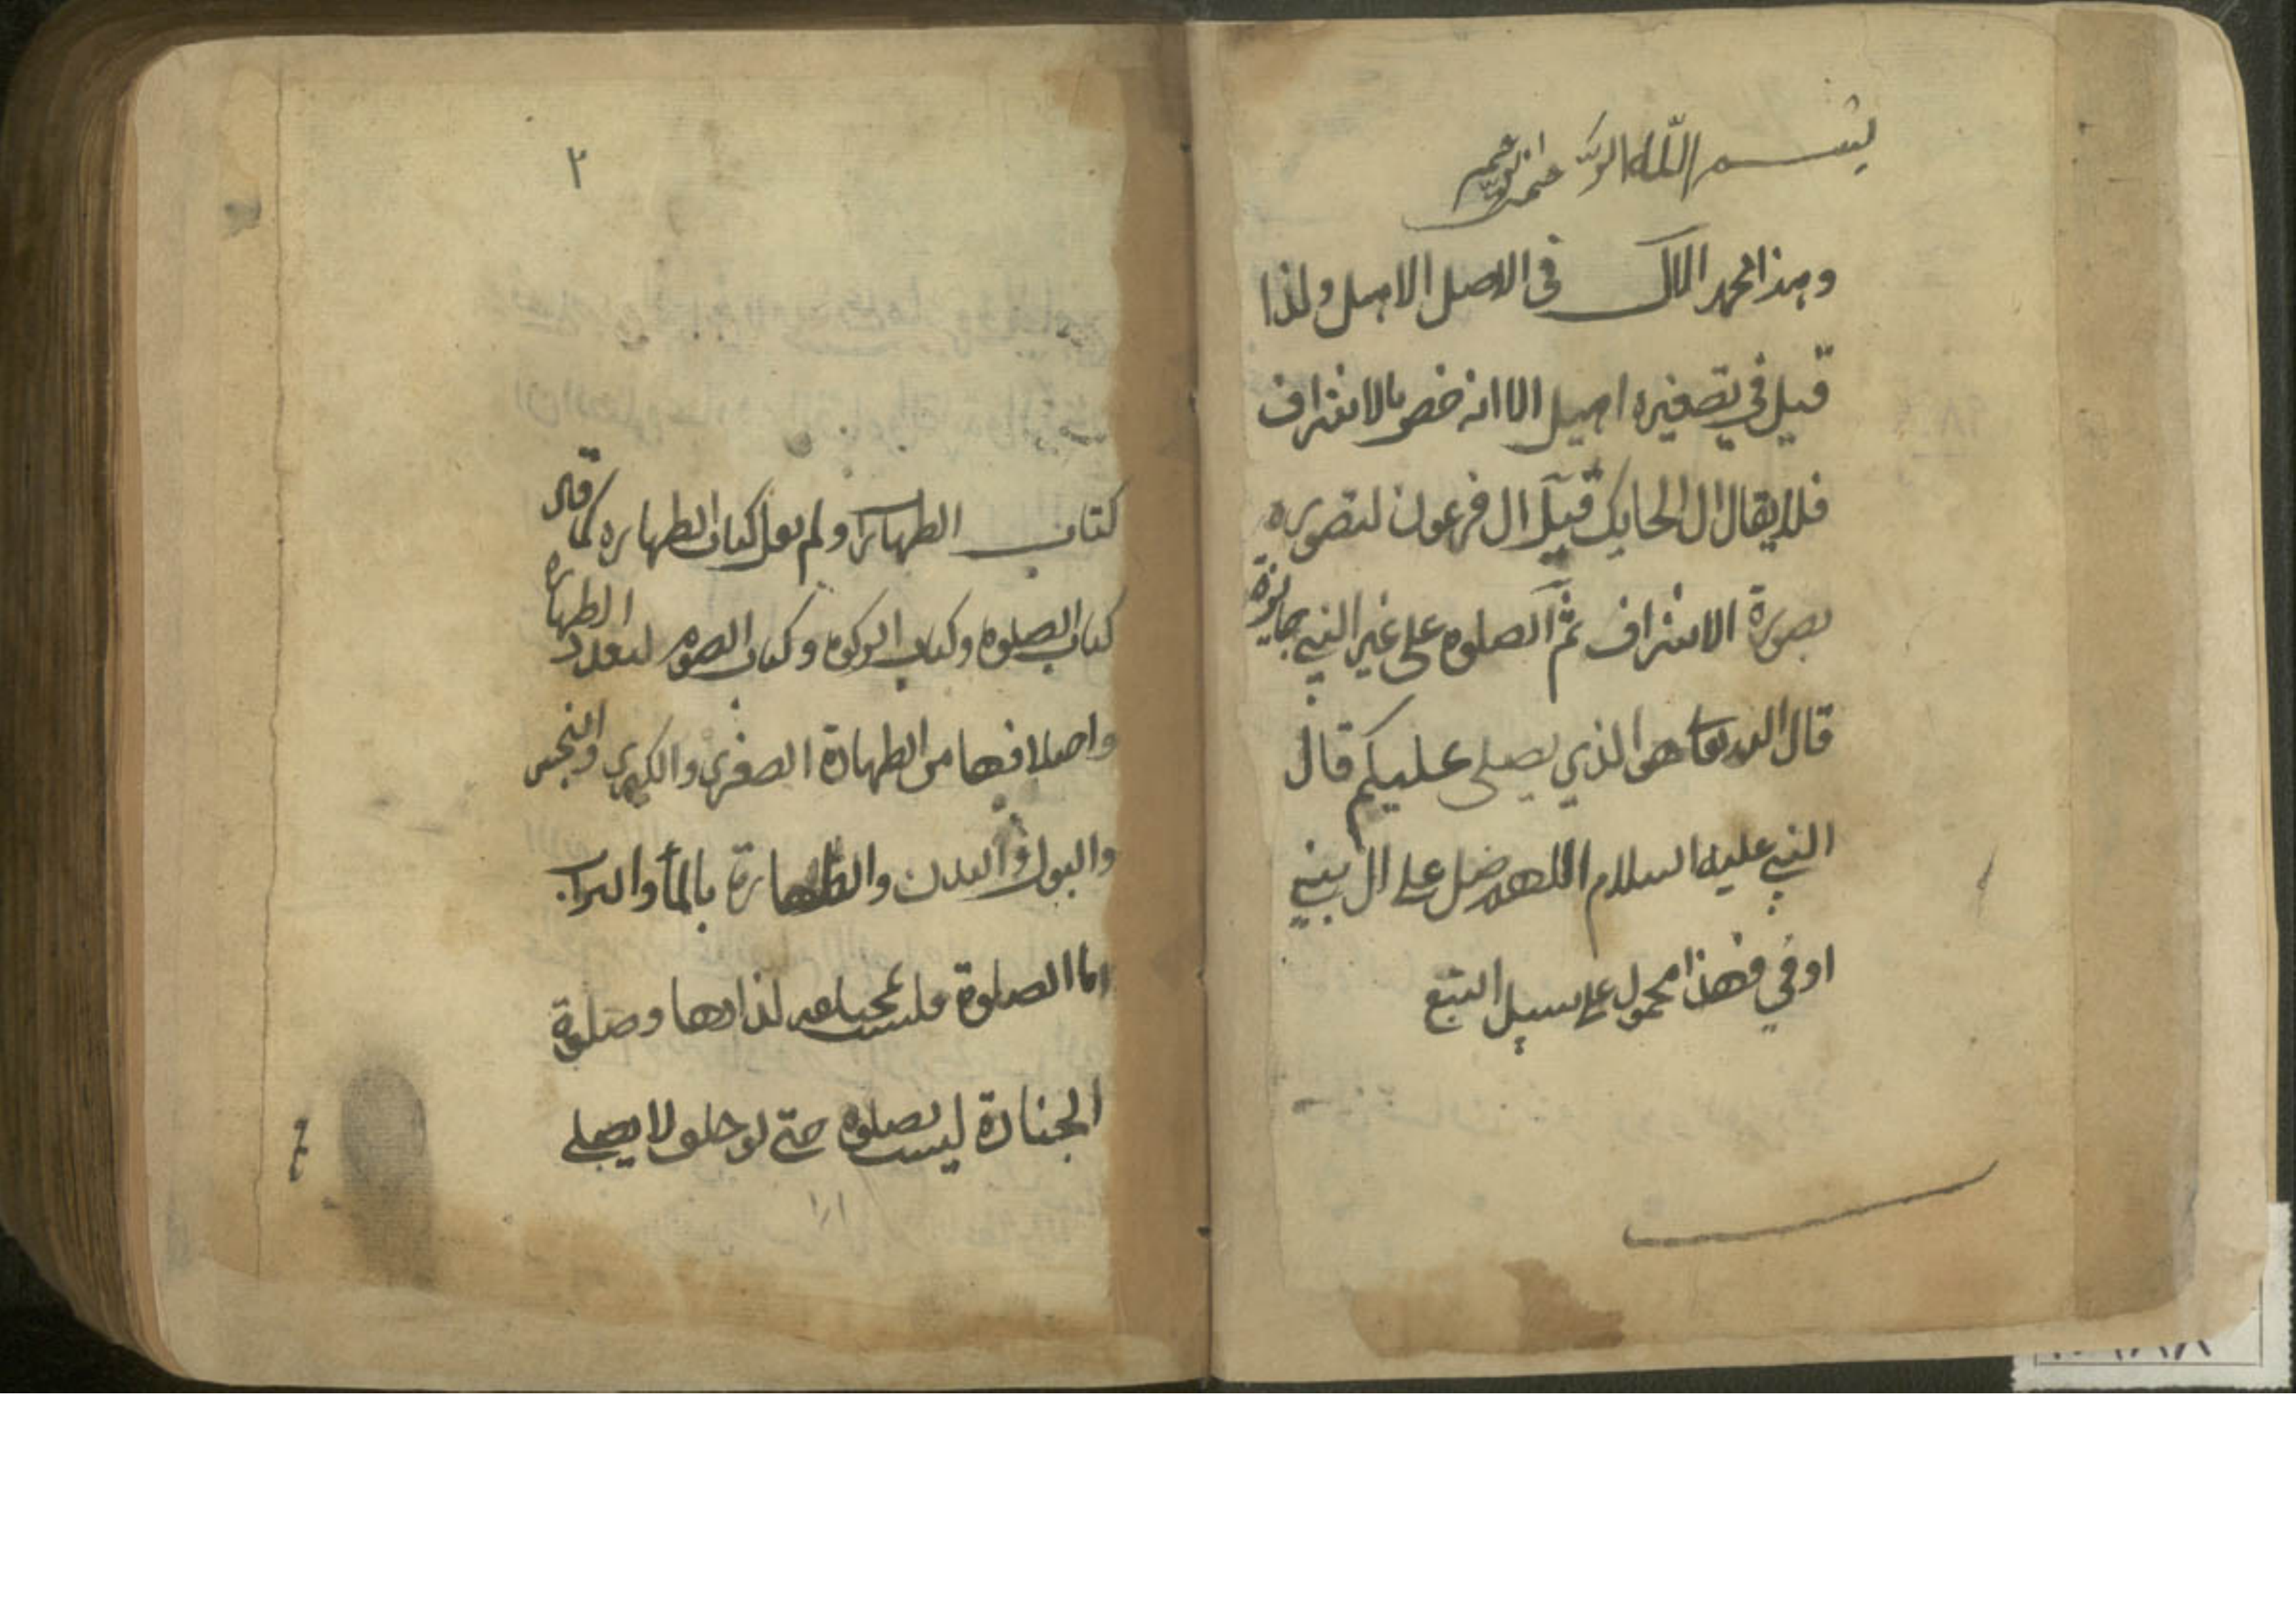 بسم الله الرحمن الرحيم
في الاصل الاهل ولذا
قيل في تصغيره اهيل الا انه خص بالاشراف
فلا يقال ال الحايك قيل ال فرعون لتصوره
بصورة الاشراف ثم الصلوه على غير النبي جايزة
قال الله تعا هو الذي يصلي عليكم قال
النبي عليه السلام اللهم صل على ال بني
اوفي فهذا محمول على سبيل التبع
٢
كتاب الطهارة ولم يقل كتاب الطهاره كما قال
كتاب الصلوه وكتاب الزكوه وكتاب الصوم لتعدد الطهاره
من الطهارة الصغرى والكبرى والنجس
والبدن والطهارة بالمأ والتراب
اما الصلوة وصلوة
الجنازة ليست بصلوه حتى لو حلف لا يصلي